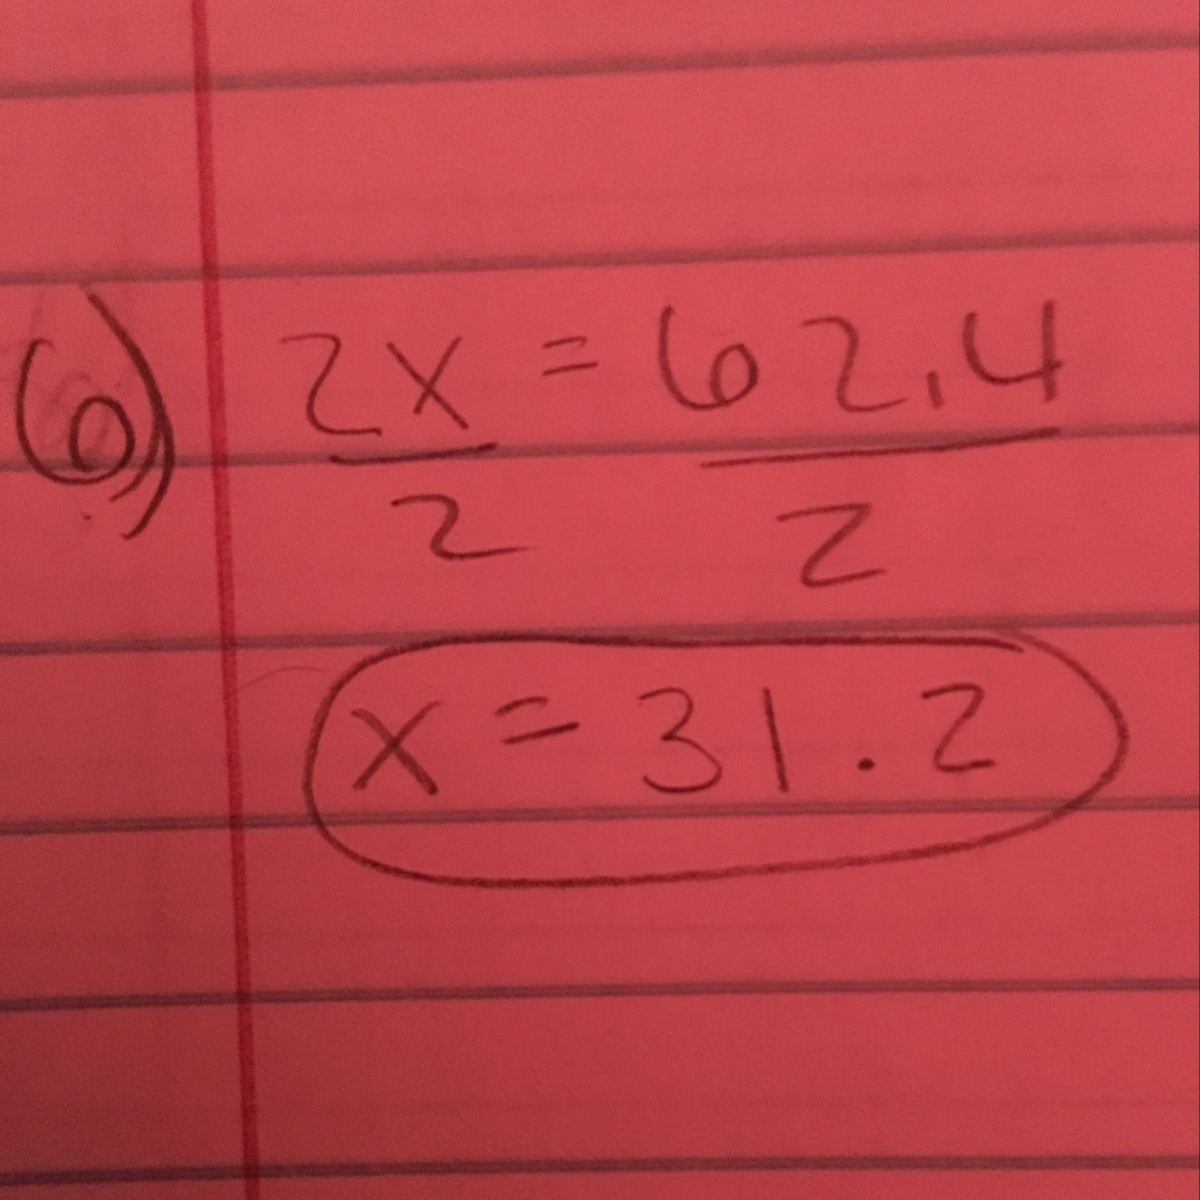 6) 2x = 62.4
2 2
x = 31.2